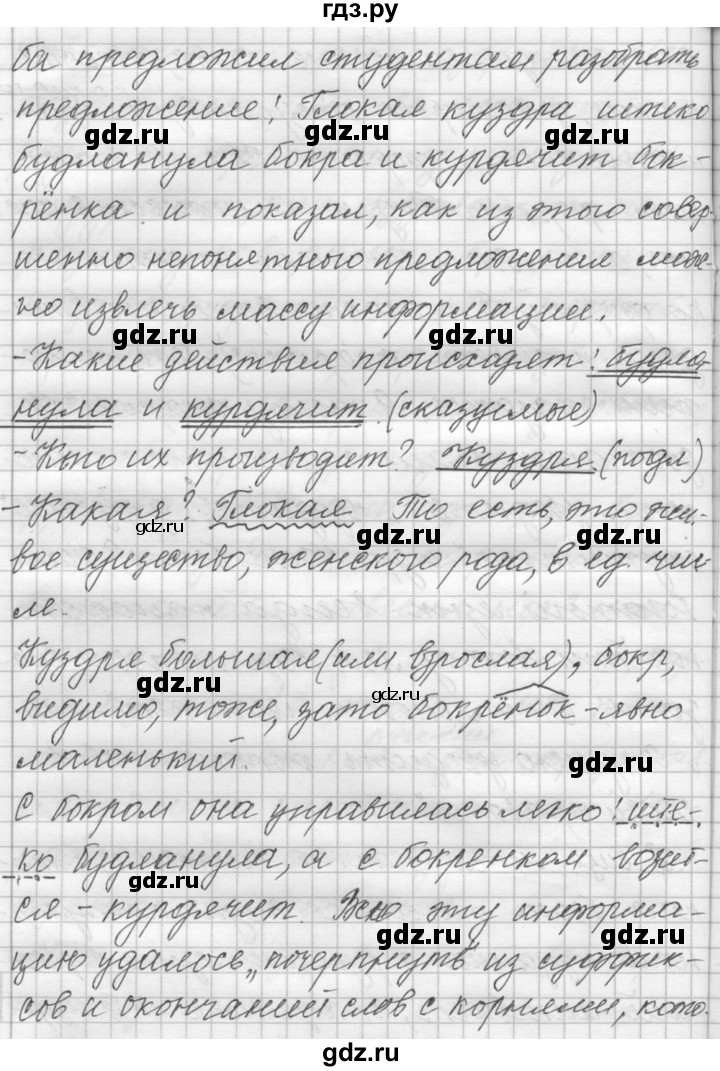 гдз.ру
ба предложил студентам разобрать
предложение: Глокая куздра штеко
gdz.ru gdz.ru gdz.ru
будланула бокра и курдячит бок-
рёнка и показал, как из этого совер-
шенно непонятного предложения мож-
но извлечь массу информации.
gdz.ru gdz.ru
- Какие действия происходят: будла-
нула и курдячит. (сказуемые)
- Кто их производит? Куздра. (подл)
- Какая? Глокая То есть, это жи-
gdz.ru gdz.ru gdz.ru
вое существо, женского рода, в ед. чис-
ле.
Куздра большая (или взрослая), бокр,
gdz.ru gdz.ru
видимо, тоже, зато бокрёнок - явно
маленький.
gdz.ru
С бокром она управилась легко: ште-
ко будланула, а с бокренком возит-
gdz.ru
ся - курдячит. Всю эту информа-
gdz.ru gdz.ru
цию удалось „почерпнуть" из суффик-
сов и окончаний слов с корнями, кото-
gdz.ru